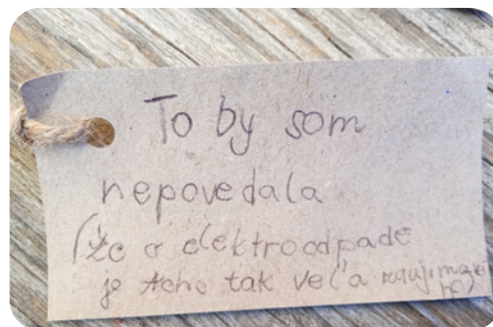 To by som
nepovedala
(že o elektroodpade
je tak veľa zaujímavé
ho)